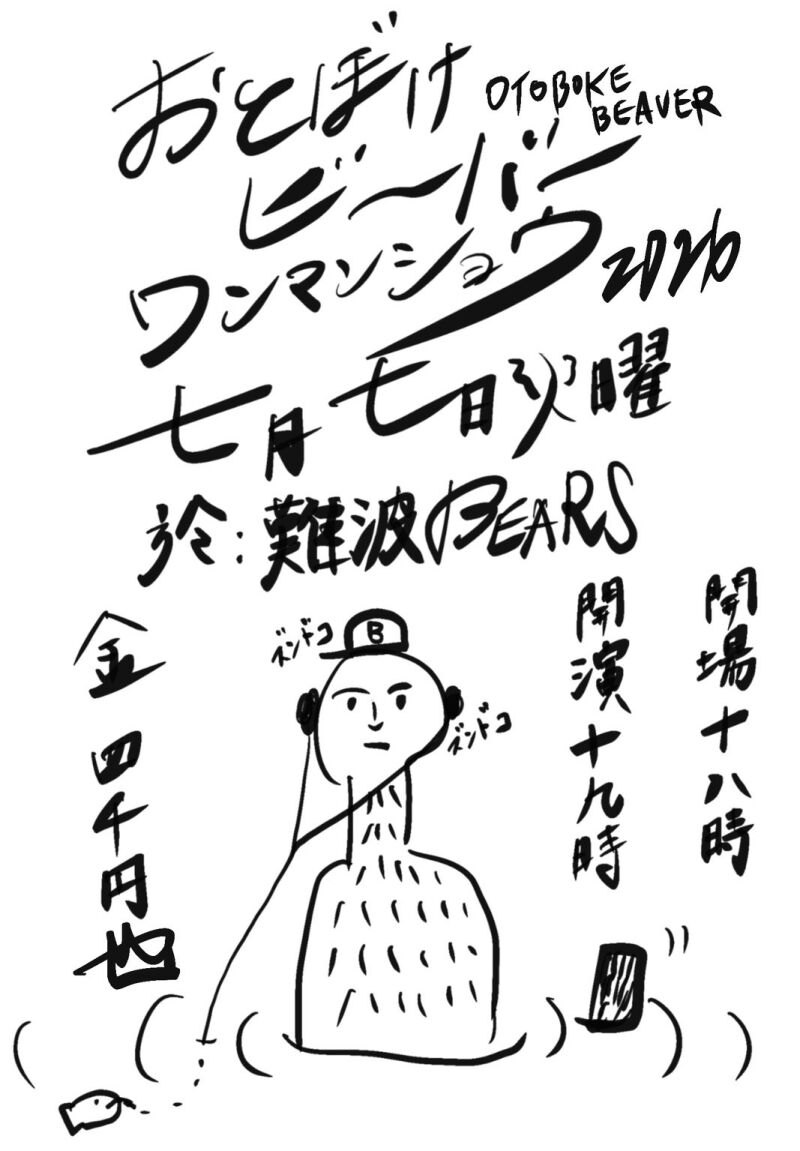 おとぼけ
OTOBOKE
BEAVER
ビ〜バー
ワンマンショウ
2026
七月七日火曜
於:難波BEARS
開場十八時
開演十九時
金四千円也
B
ズンドコ
ズンドコ